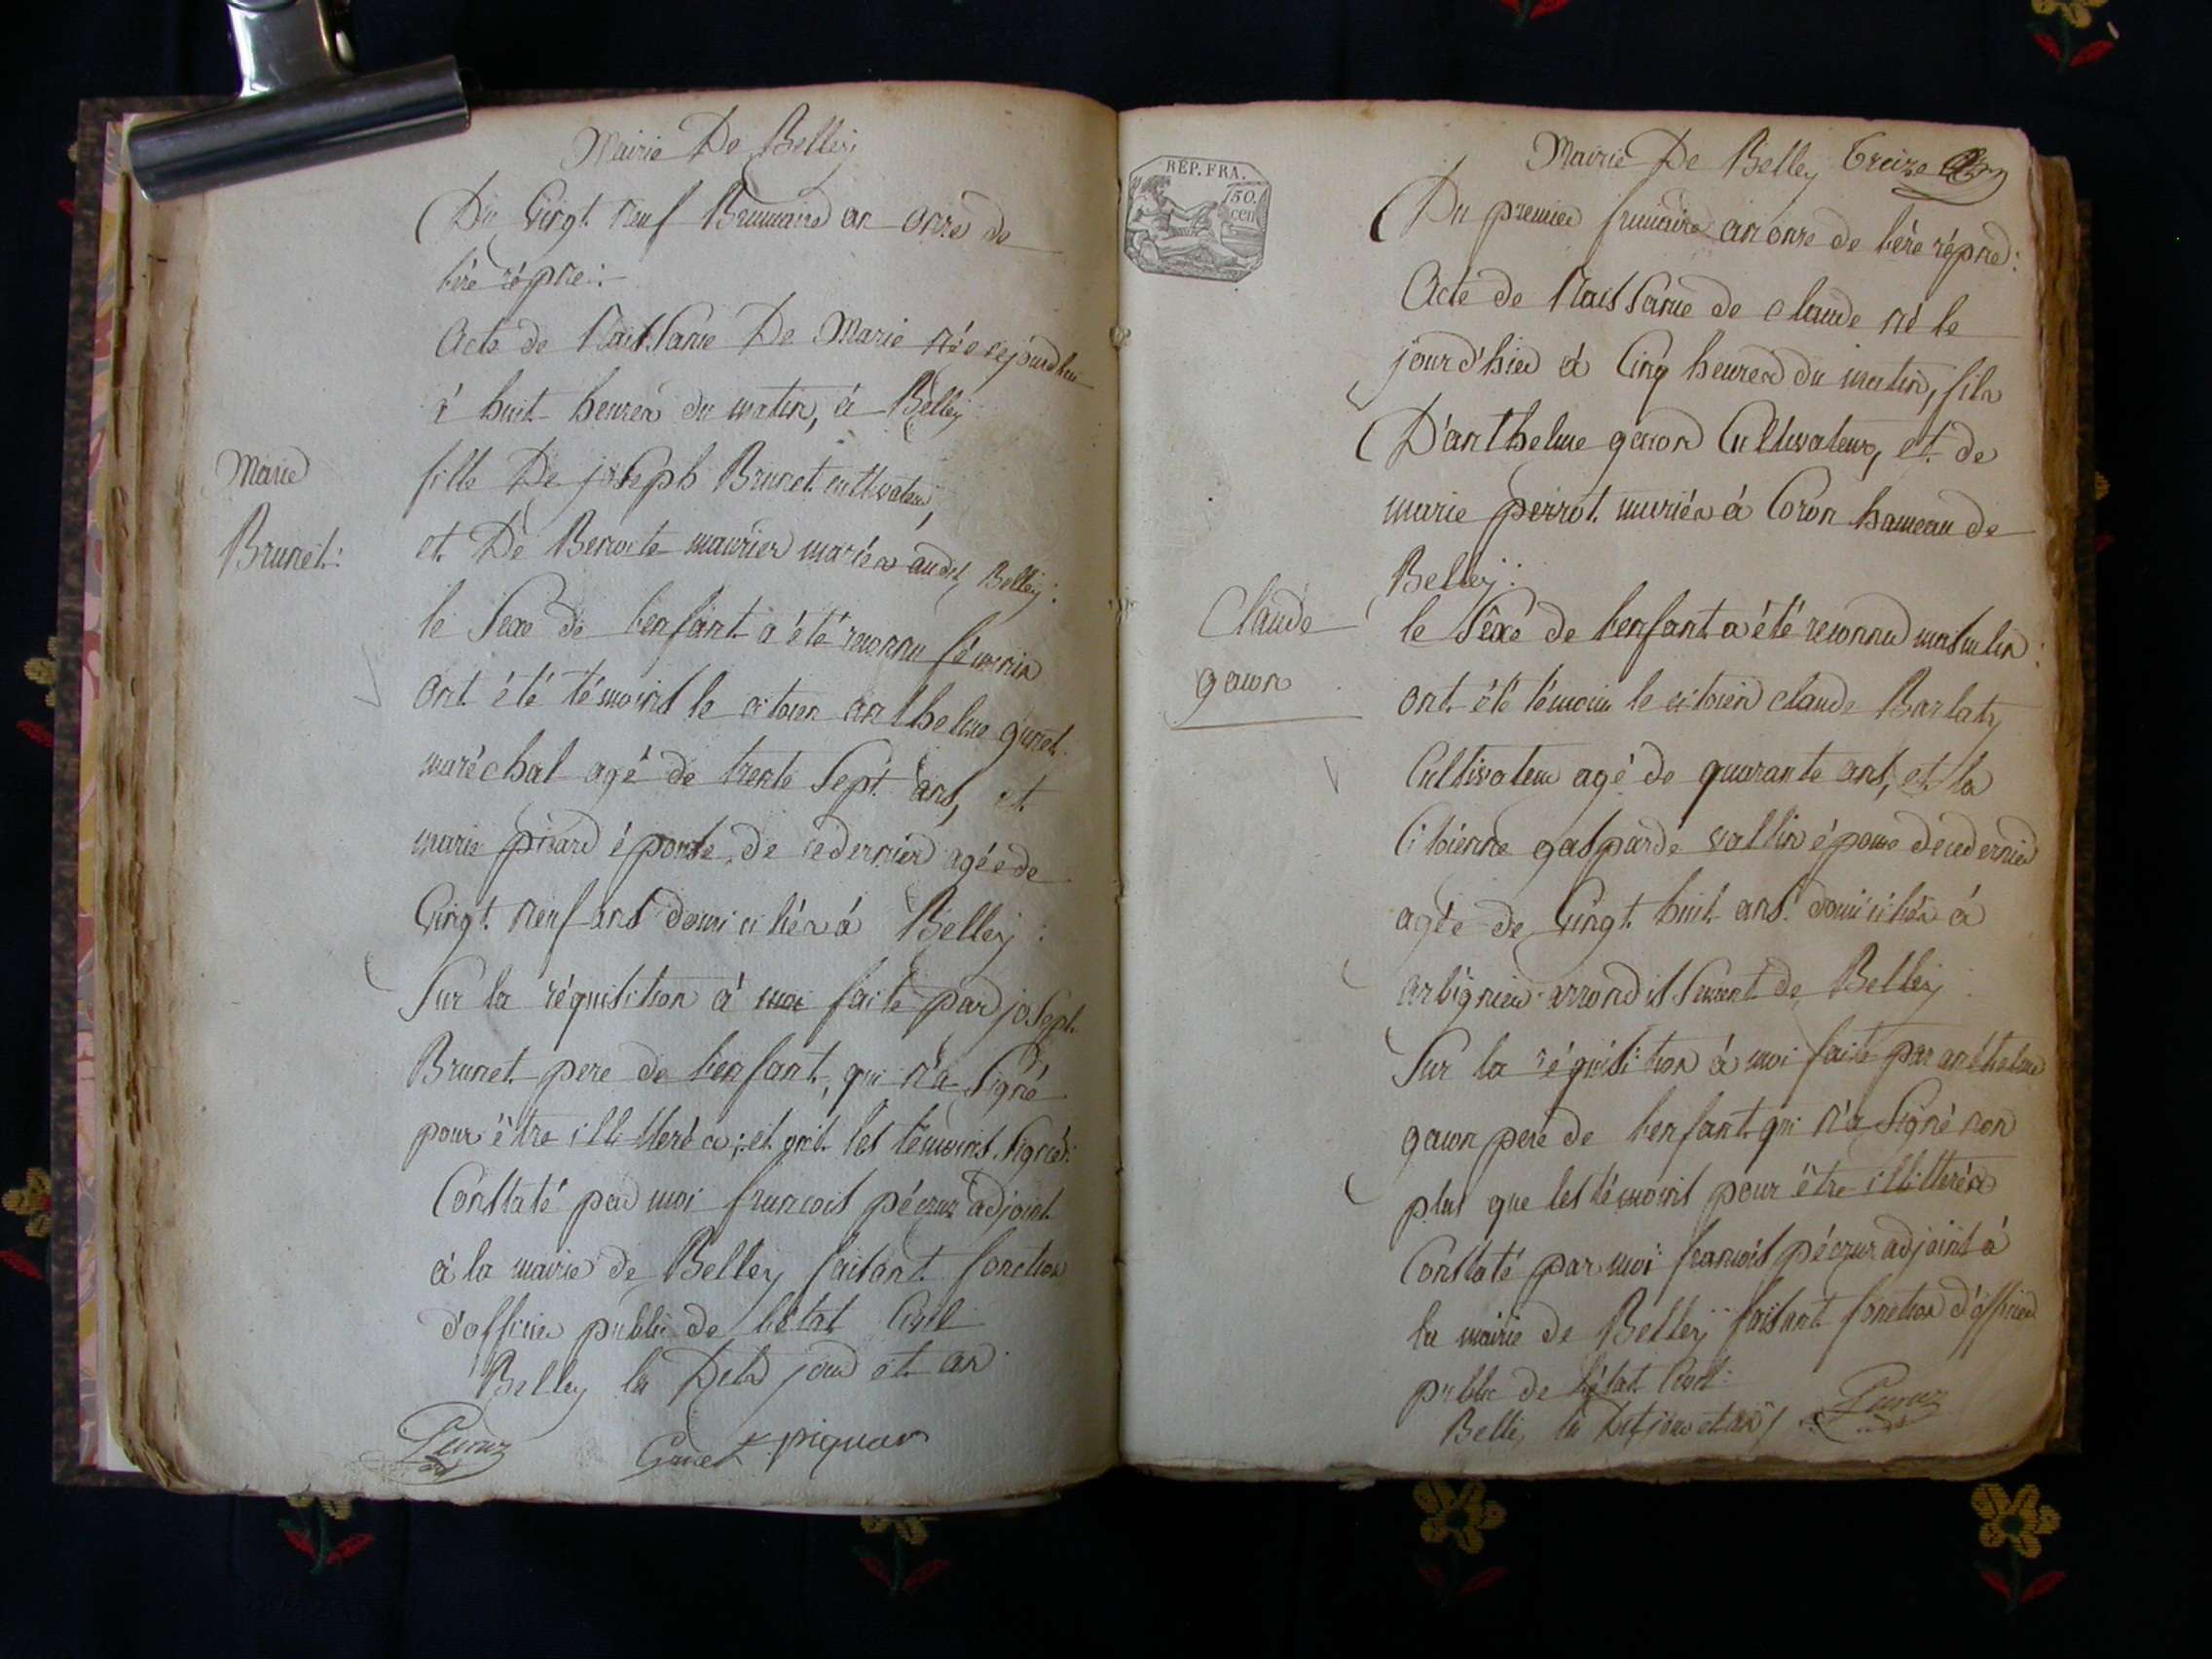 Mairie De Belley
Du Vingt neuf Brumaire an onze de
l'ère répne:
Acte de Naissance De Marie née cejourdhui
à huit heures du matin, à Belley
Marie
Brunet:
fille De joseph Brunet cultivateur,
et De Benoite maurier mariés audit Belley:
le Sexe de lenfant a été reconnu féminin
ont été témoins le citoien anthelme gunet
maréchal agé de trente Sept ans, et
marie épouse de cedernier agée de
Vingt neuf ans domiciliés à Belley:
Sur la réquisition à moi faite par joseph
Brunet pere de lenfant, qui n'a Signé
pour être illitteré; et ont les témoins Signés:
Constaté par moi francois pécruz adjoint
à la mairie de Belley faisant fonction
d'officier public de l'état Civil
Belley les Dits jour et an
Pecruz
Gunet
piquar
RÉP. FRA.
50.
cen
Mairie De Belley Treize
Du premier frimaire an onze de l'ère répne:
Acte de Naissance de claude né le
jour d'hier à Cinq heures du matin, fils
D'anthelme gacon Cultivateur, et de
marie perrot mariés à Coron hameau de
Belley:
Claude
gacon
le Sexe de lenfant a été reconnu masculin:
ont été témoins le citoien claude Barlaty
Cultivateur agé de quarante ans, et la
Citoienne gasparde vallin épouse decedernier
agée de Vingt huit ans domiciliés à
arbignieu arrondissement de Belley
Sur la réquisition à moi faite par anthelme
gacon pere de lenfant qui n'a Signé non
plus que les témoins pour être illitterés
Constaté par moi francois pécruz adjoint à
la mairie de Belley faisant fonction d'officier
public de l'état Civil:
Belley les Dit jour et an
Pecruz